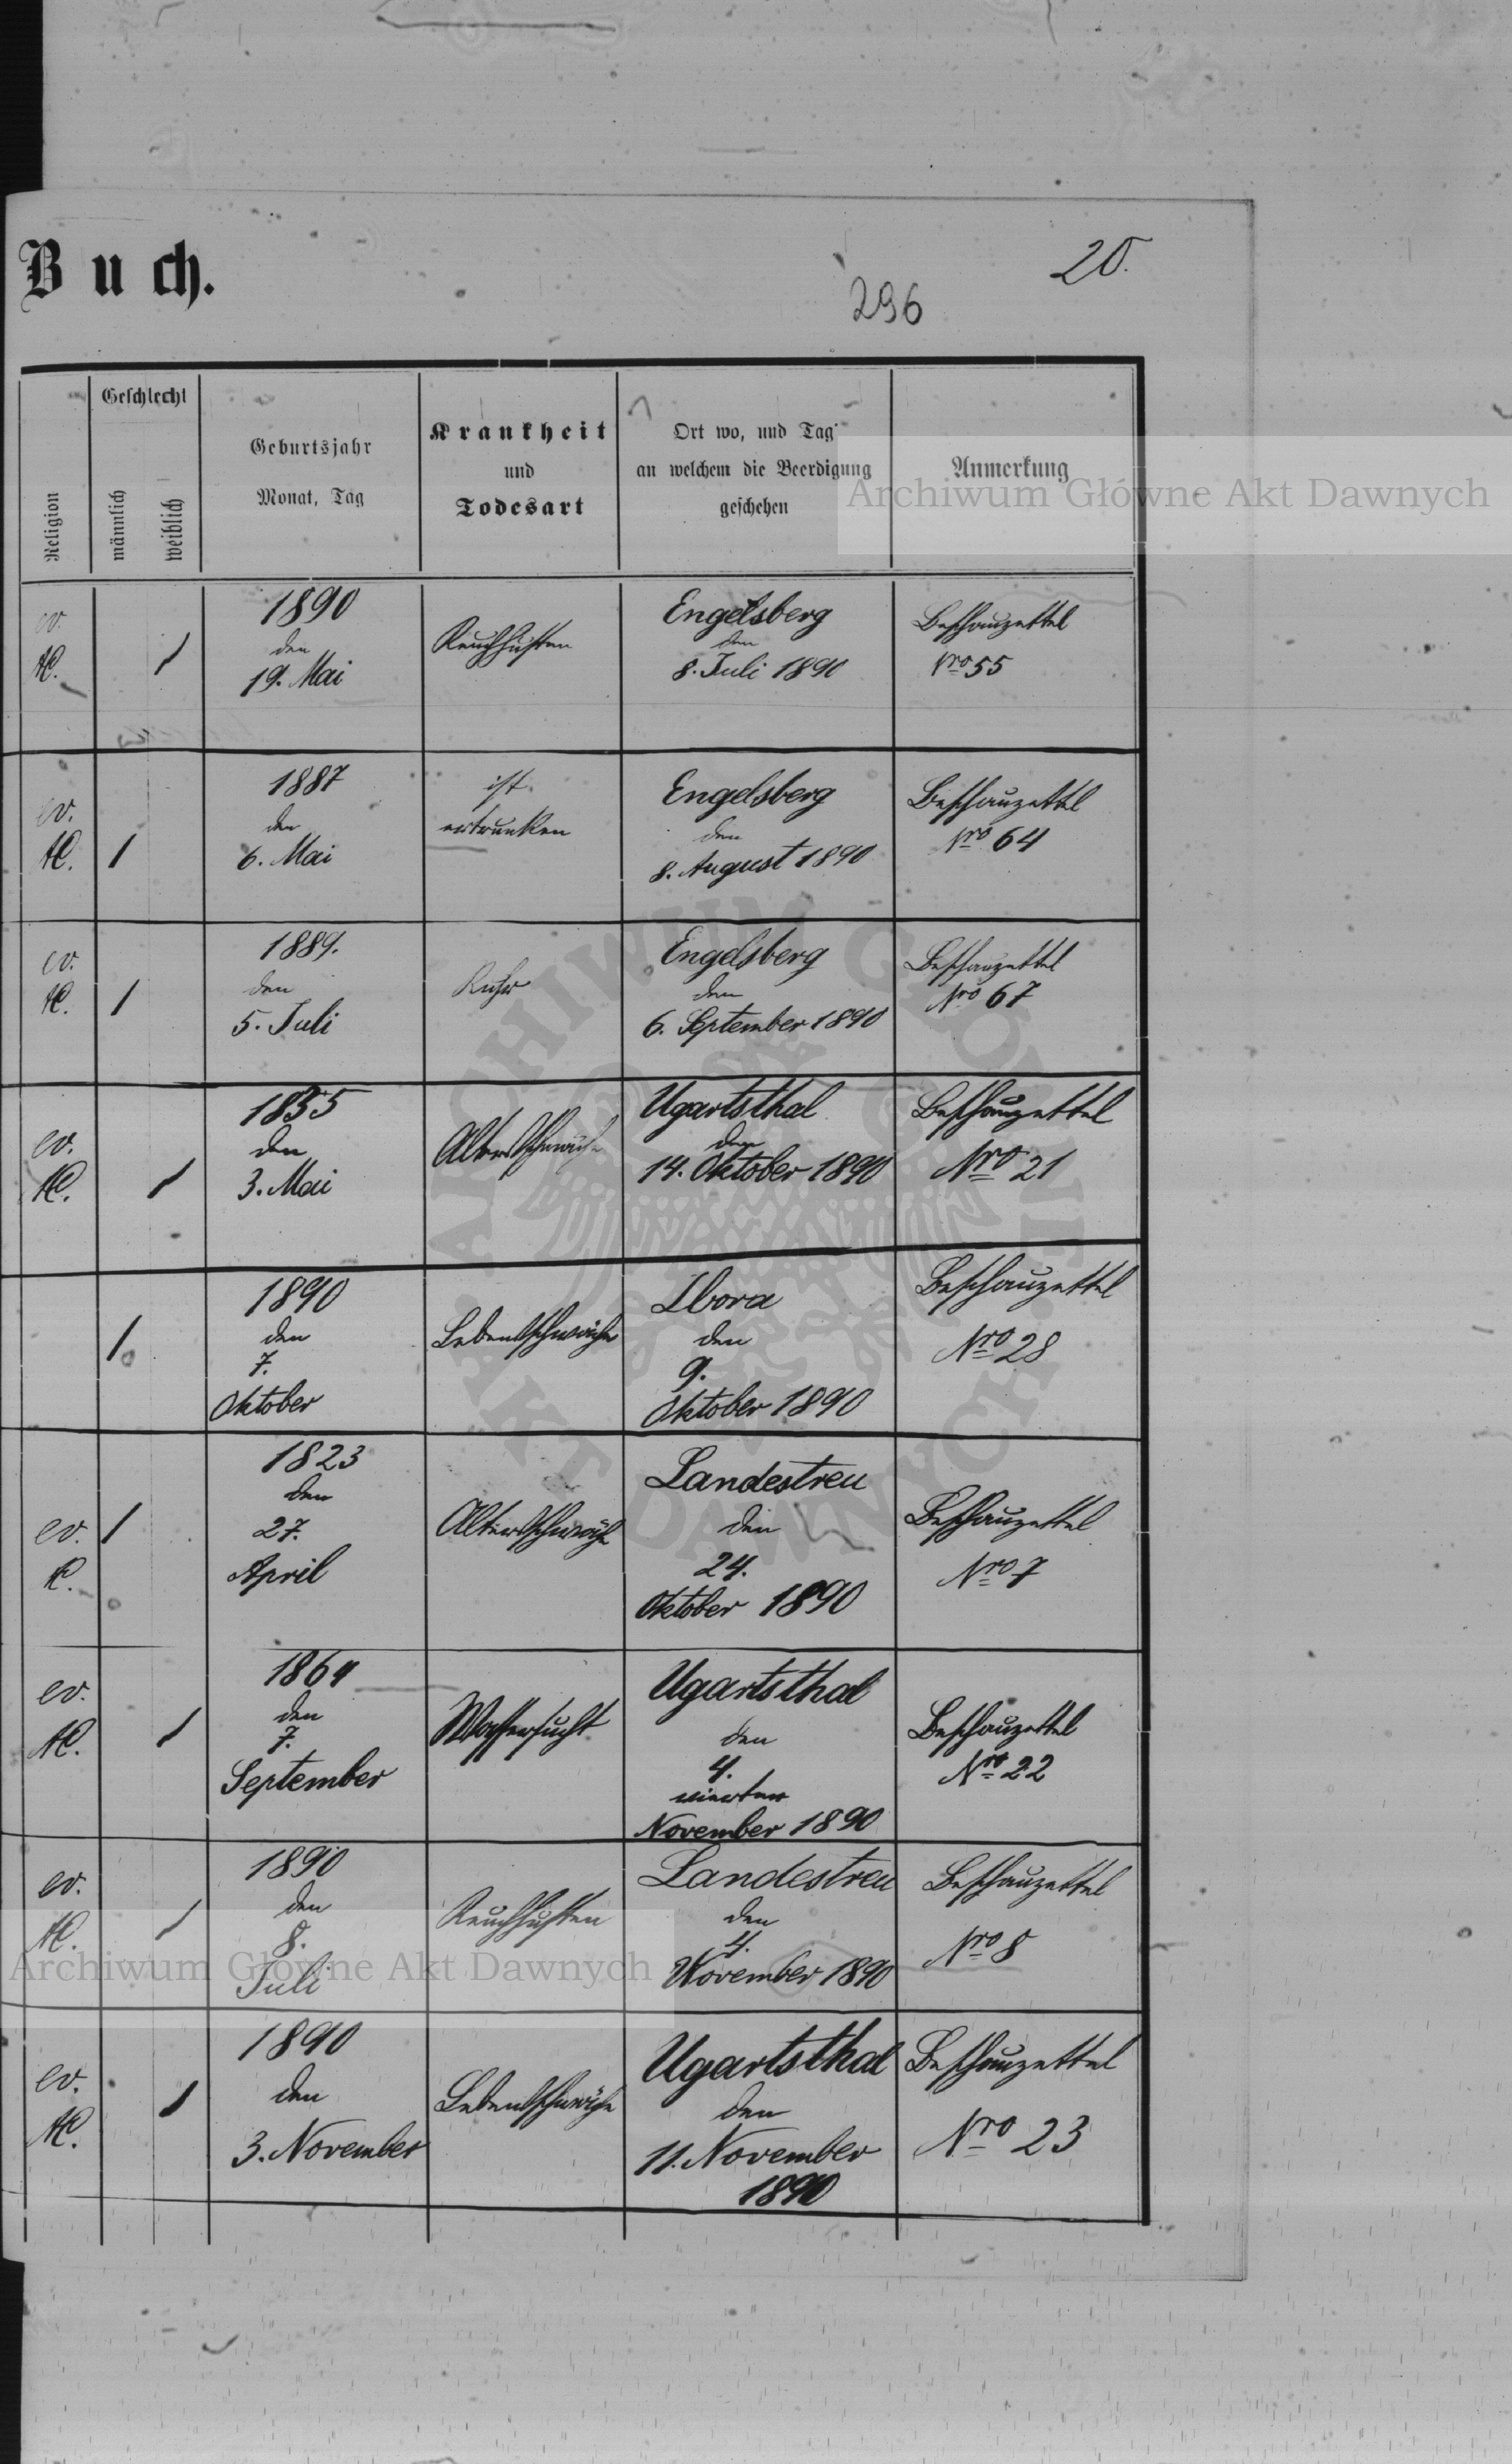 Buch.
20.
296
Religion
Geschlecht
männlich
weiblich
Geburtsjahr
Monat, Tag
Krankheit
und
Todesart
Ort wo, und Tag
an welchem die Beerdigung
geschehen
Anmerkung
Archiwum Główne Akt Dawnych
ev.
1890
den
19. Mai
Keuchhusten
Engelsberg
den
8. Juli 1890
Beschauzettel
Nro 55
ev.
1887
den
6. Mai
ist
ertrunken
Engelsberg
den
8. August 1890
Beschauzettel
Nro 64
ev.
1889.
den
5. Juli
Ruhr
Engelsberg
den
6. September 1890
Beschauzettel
Nro 67
ev.
den
3. Mai
Altersschwäche
Ugartsthal
den
14. Oktober 1890
Beschauzettel
Nro 21
1890
den
7.
Oktober
Lebensschwäche
den
9.
Oktober 1890
Beschauzettel
Nro 28
ev.
1823
den
27.
April
Altersschwäche
Landestreu
den
24.
Oktober 1890
Beschauzettel
Nro 7
ev.
1864
den
7.
September
Wassersucht
Ugartsthal
den
4.
vierten
November 1890
Beschauzettel
Nro 22
ev.
1890
den
8.
Juli
Keuchhusten
Landestreu
den
4.
November 1890
Beschauzettel
Nro 8
Archiwum Główne Akt Dawnych
ev.
1890
den
3. November
Lebensschwäche
Ugartsthal
den
11. November
1890
Beschauzettel
Nro 23
ARCHIWUM GŁÓWNE AKT DAWNYCH